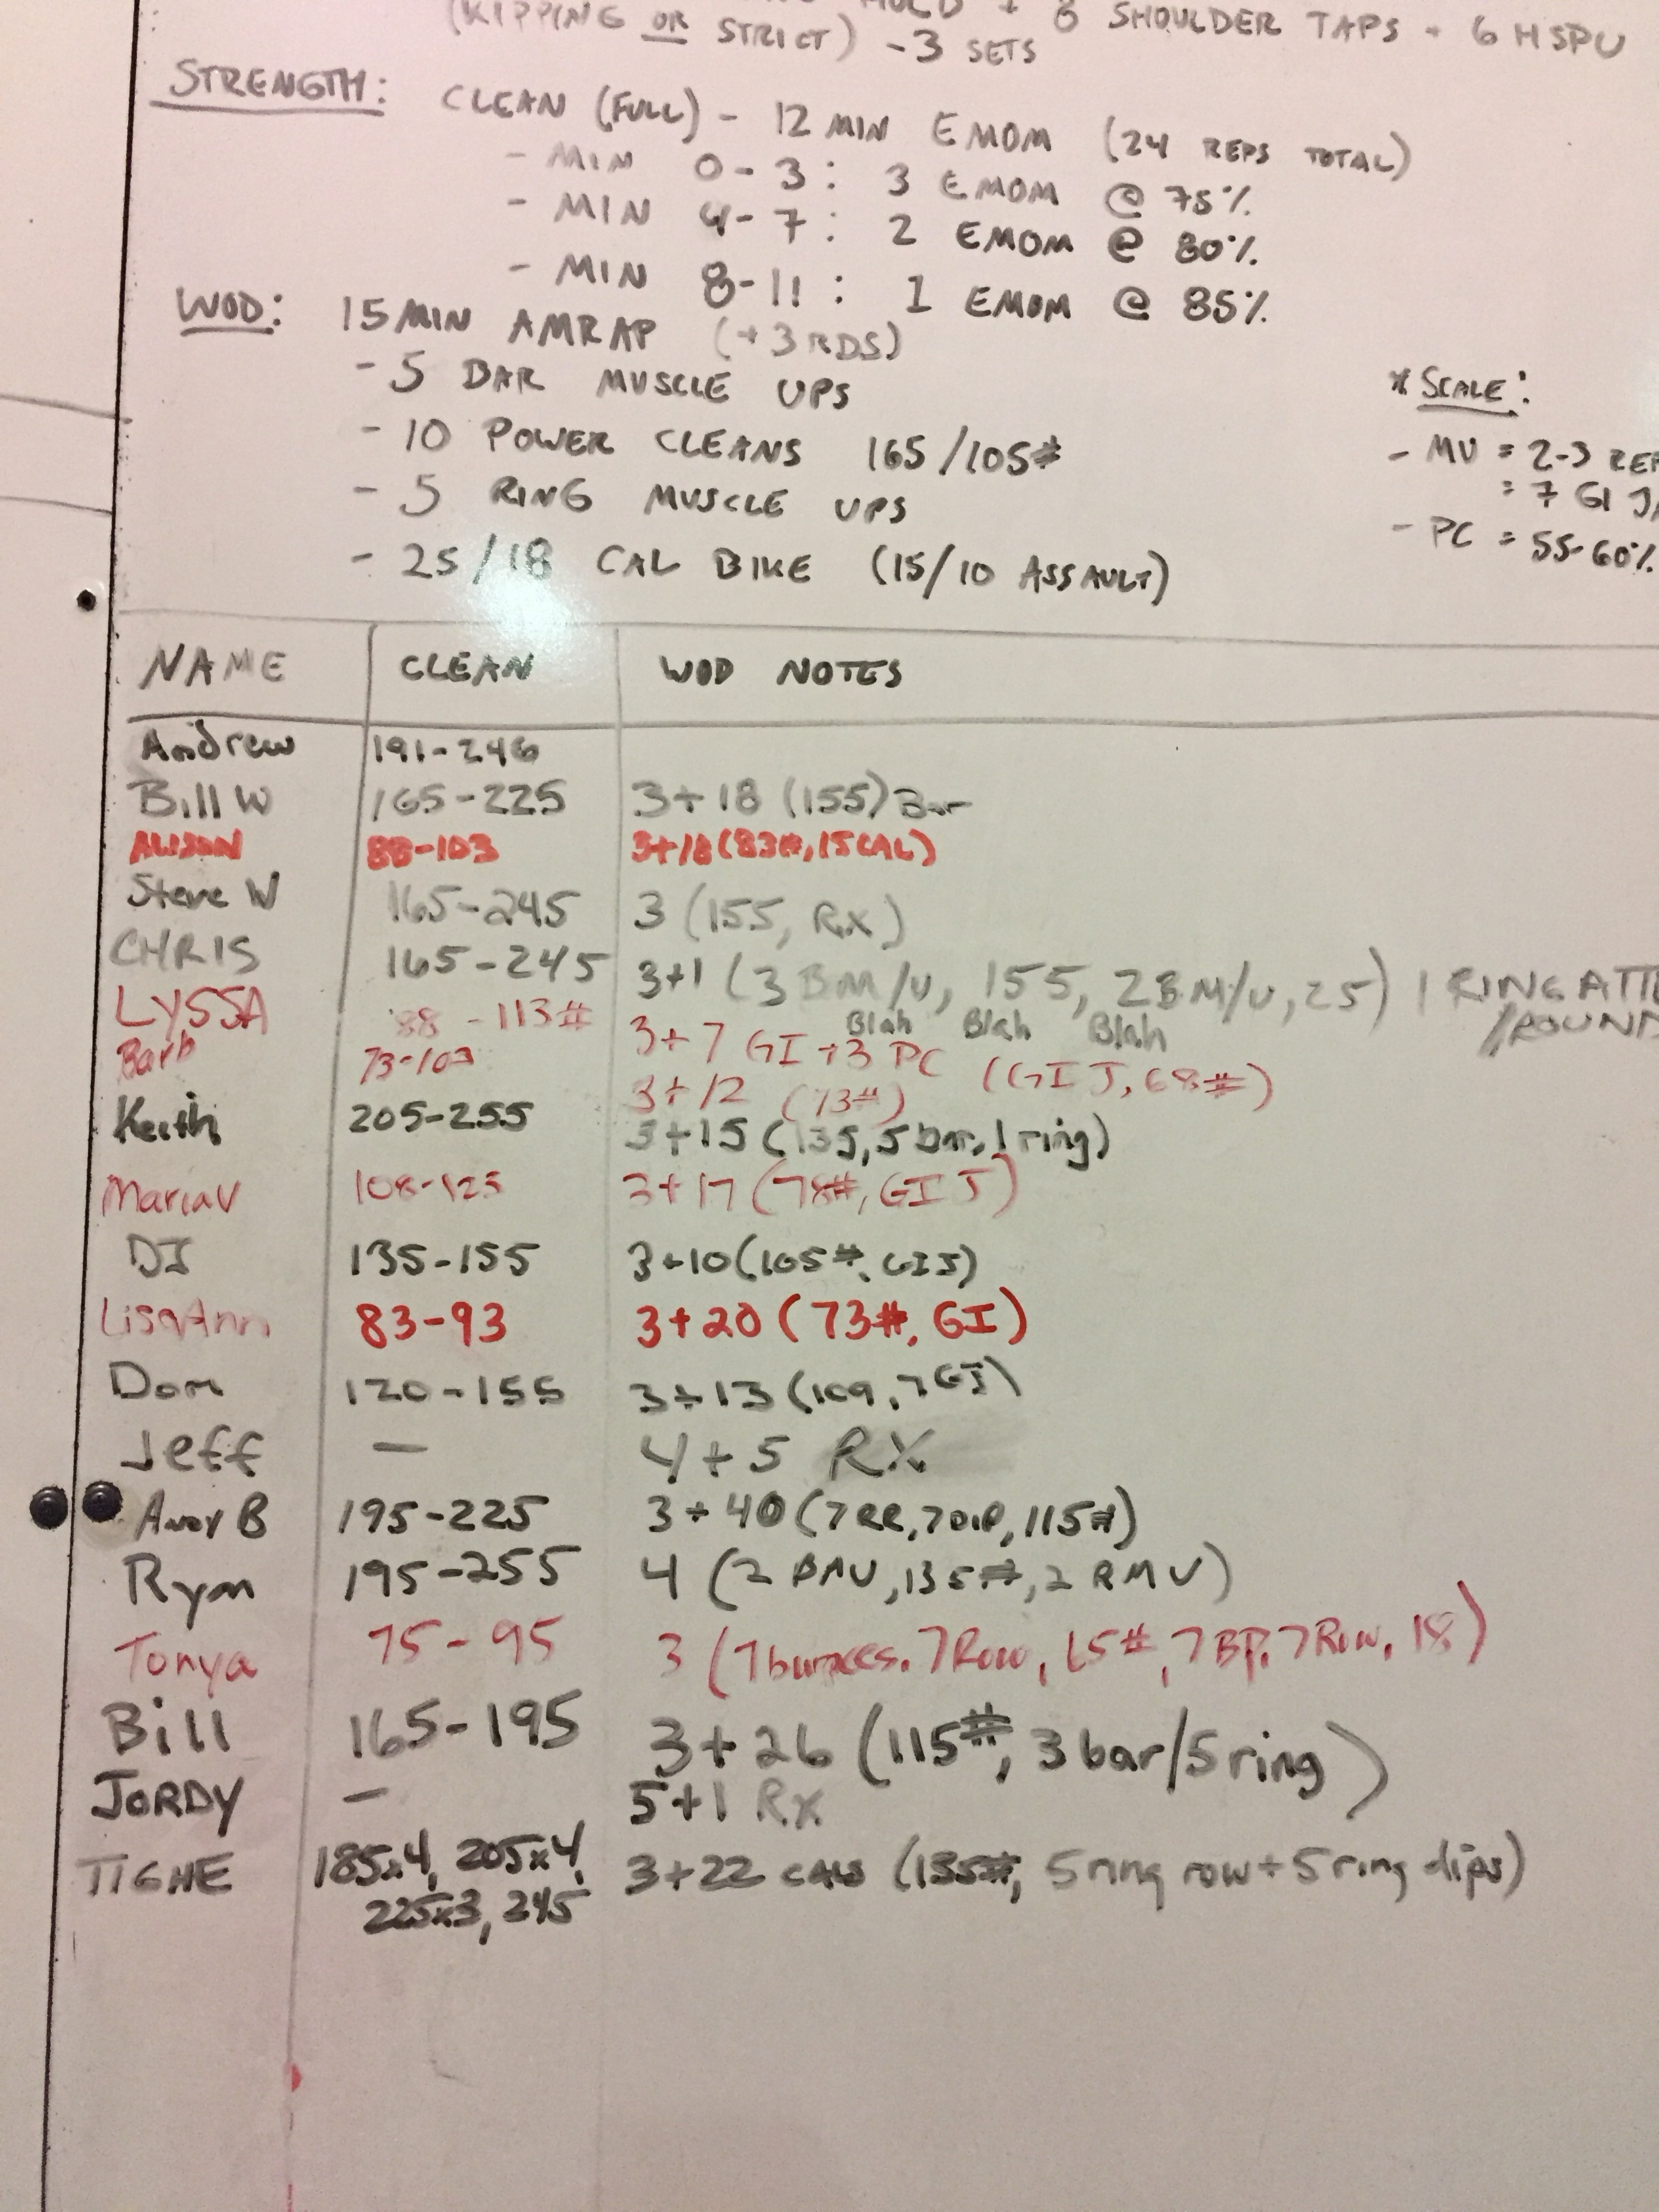 HOLD + 8 SHOULDER TAPS + 6 HSPU
(KIPPING OR STRICT) - 3 SETS
STRENGTH: CLEAN (FULL) - 12 MIN EMOM (24 REPS TOTAL)
- MIN 0-3: 3 EMOM @ 75%
- MIN 4-7: 2 EMOM @ 80%
- MIN 8-11: 1 EMOM @ 85%
WOD: 15 MIN AMRAP (+3 RDS)
- 5 BAR MUSCLE UPS
- 10 POWER CLEANS 165/105#
- 5 RING MUSCLE UPS
- 25/18 CAL BIKE (15/10 ASSAULT)
* SCALE:
- MU = 2-3 REP
= 7 GI J
- PC = 55-60%
NAME CLEAN WOD NOTES
Andrew 191-246
Bill W 165-225 3+18 (155) Bar
ALISON 88-103 3+18 (83#, 15 CAL)
Steve W 165-245 3 (155, RX)
CHRIS 165-245 3+1 (3 BM/U, 155, 2BM/U, 25) 1 RING ATT
/ROUND
Blah Blah Blah
LYSSA 88-113# 3+7 GI +3 PC (GI J, 68#)
Barb 73-103 3+12 (73#)
Keith 205-255 3+15 (135, 5 bar, 1 ring)
Maria V 108-125 3+17 (78#, GI J)
DJ 135-155 3+10 (105#, GIJ)
LisaAnn 83-93 3+20 (73#, GI)
Dom 120-155 3+13 (109, 7 GJ)
Jeff — 4+5 RX
B 195-225 3+40 (7RR, 7DIP, 115#)
Ryan 195-255 4 (2 BMU, 135#, 2 RMU)
Tonya 75-95 3 (7burpees, 7Row, 65#, 7BP, 7Row, 18)
Bill 165-195 3+26 (115#, 3 bar/5 ring)
JORDY — 5+1 Rx
TIGHE 185x4, 205x4, 3+22 cals (135#, 5 ring row + 5 ring dips)
225x3, 245